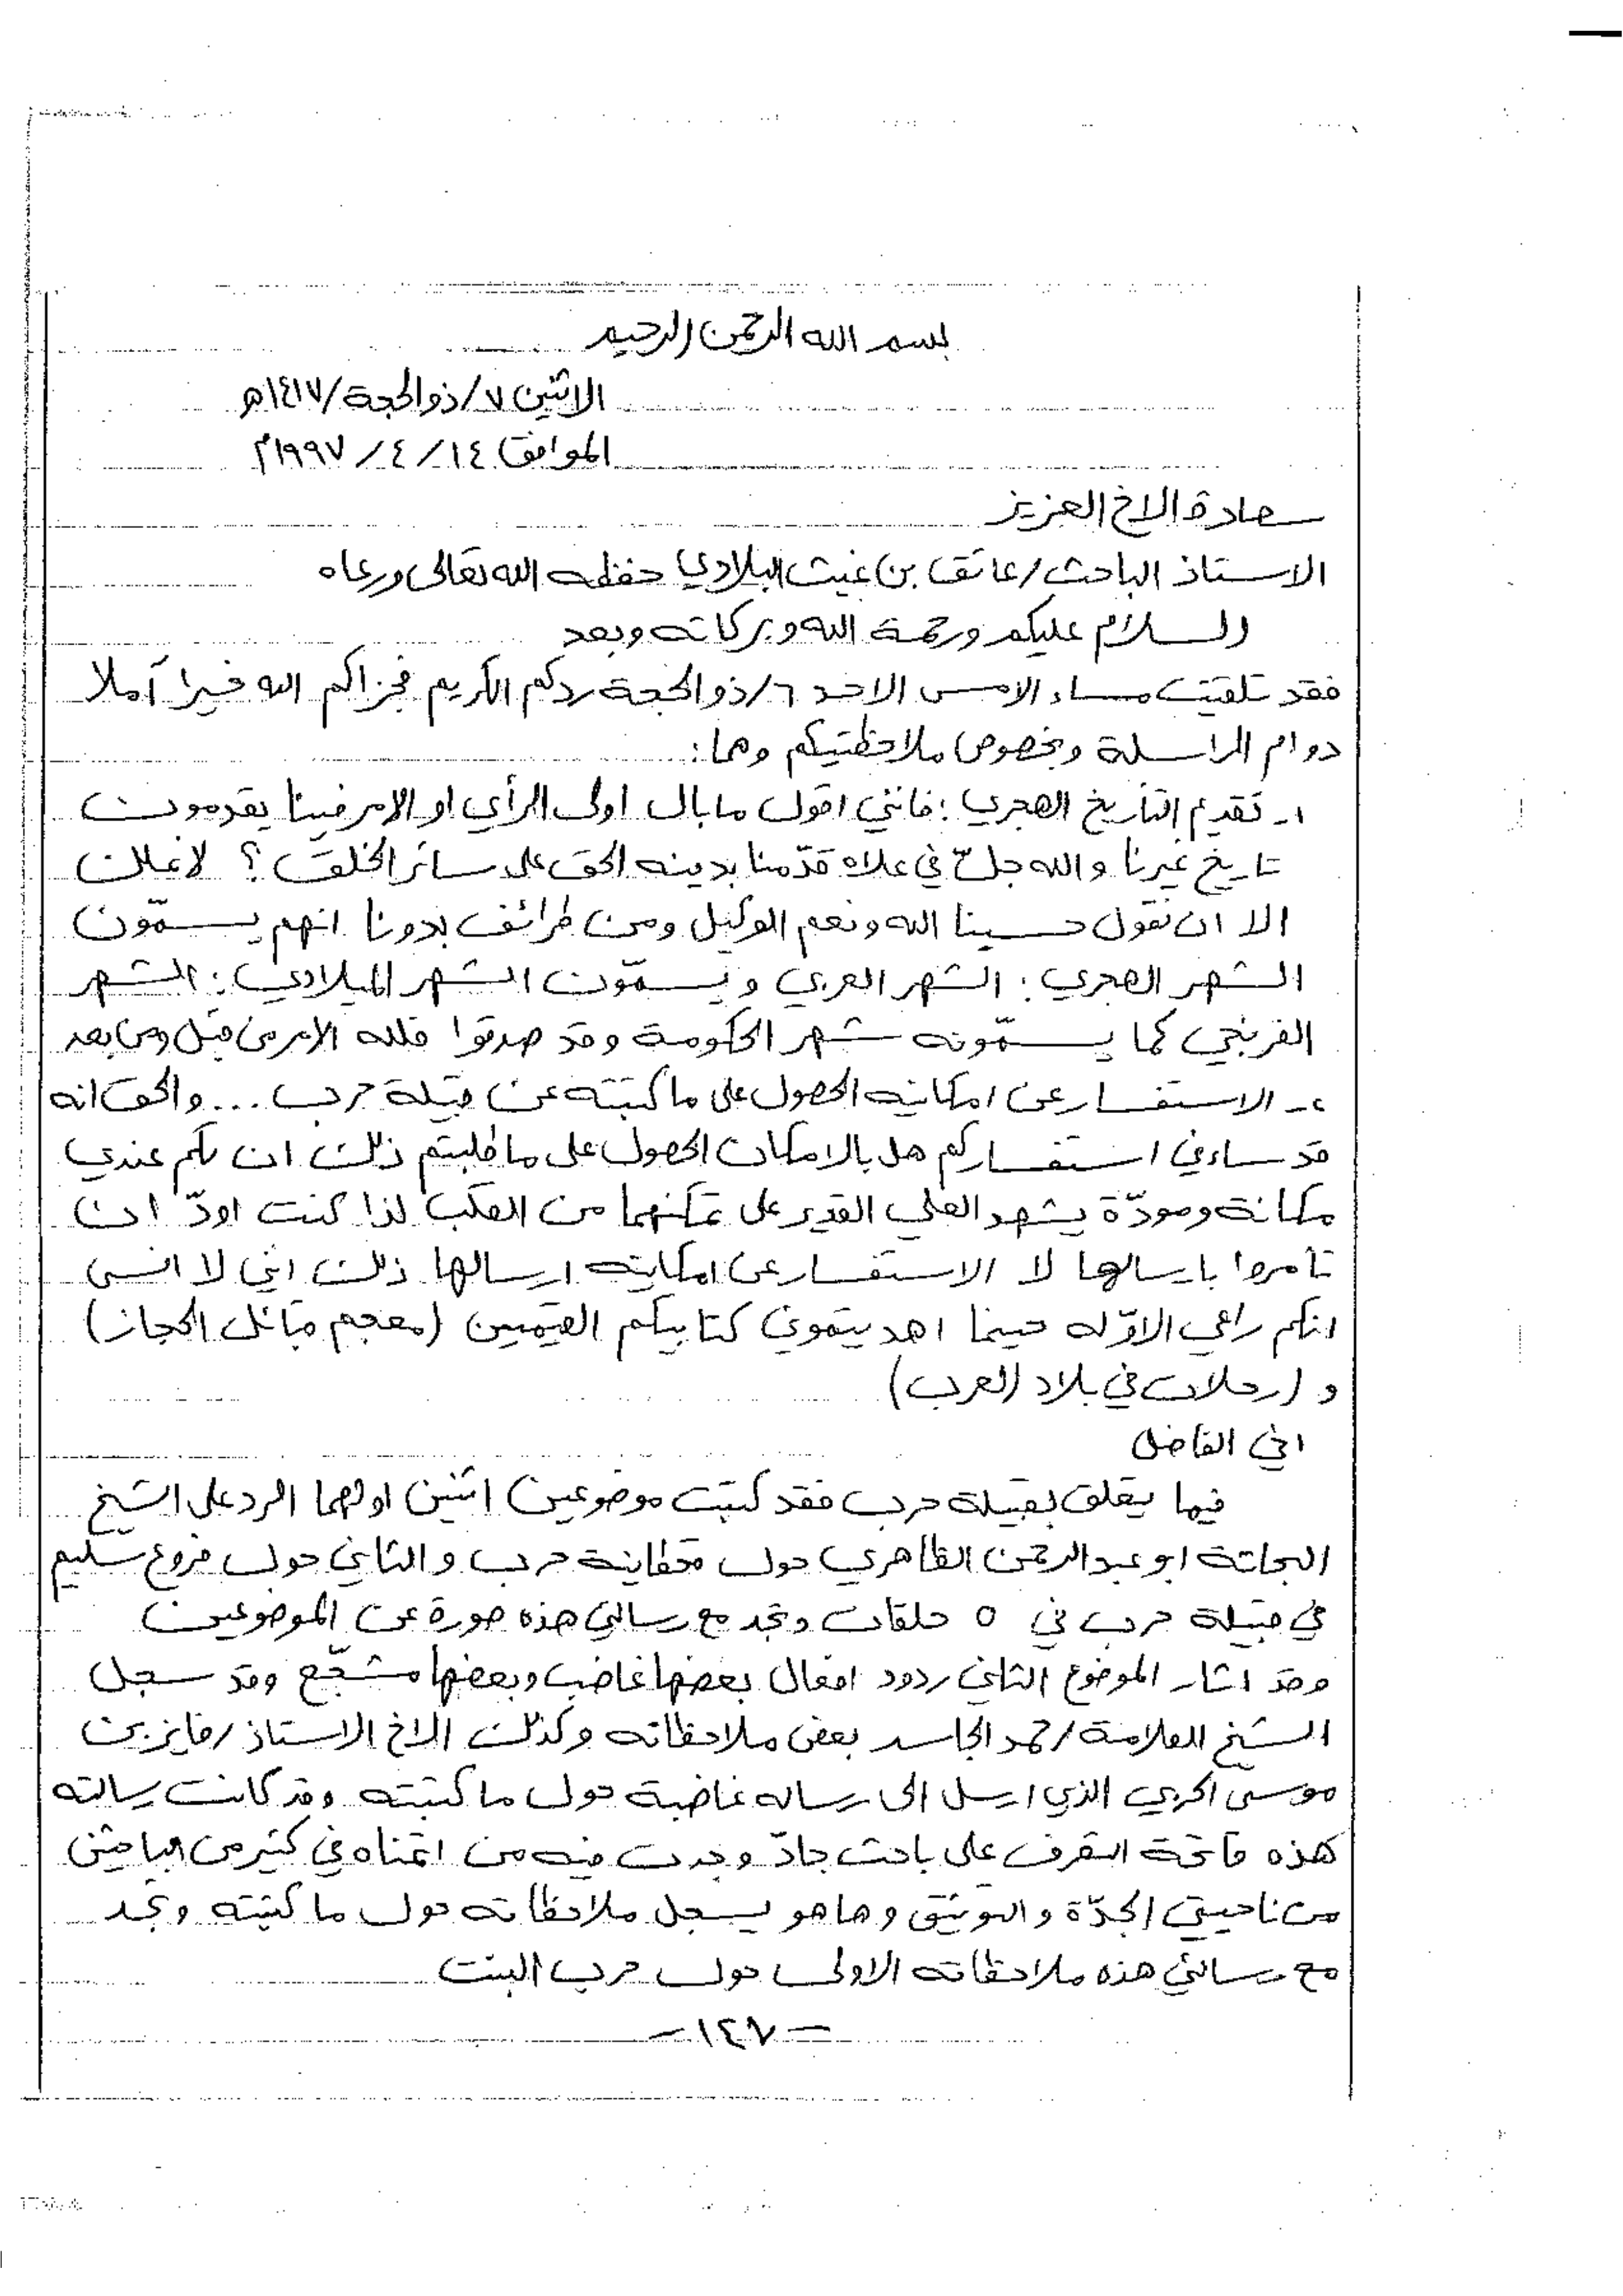 بسم الله الرحمن الرحيم
الاثنين ٧/ذوالحجة/١٤١٧ه
الموافق ١٤/٤/١٩٩٧م
سعادة الاخ العزيز
الاستاذ الباحث/عاتق بن غيث البلادي حفظه الله تعالى ورعاه
السلام عليكم ورحمة الله وبركاته وبعد
فقد تلقيت مساء الامس الاحد ٦/ذوالحجة ردكم الكريم فجزاكم الله خيرا آملا
دوام المراسلة وبخصوص ملاحظتيكم وهما:
١- تقديم التأريخ الهجري: فانني اقول ما بال اولى الرأي او الامر فينا يقدمون
تاريخ غيرنا والله جلّ في علاه قدّمنا بدينه الحق على سائر الخلق؟ لا نملك
الا ان نقول حسبنا الله ونعم الوكيل ومن طرائف بدونا انهم يسمّون
الشهر الهجري: الشهر العربي ويسمّون الشهر الميلادي: الشهر
الفرنجي كما يسمّونه شهر الحكومة وقد صدقوا فلله الامر من قبل ومن بعد
٢- الاستفسار عن امكانية الحصول على ما كتبته عن قبيلة حرب... والحق انه
قد ساءني استفساركم هل بالامكان الحصول على ما طلبتم ذلك ان لكم عندي
مكانة ومودّة يشهد العلي القدير على تمكنهما من القلب لذا كنت اودّ ان
تأمروا بارسالها لا الاستفسار عن امكانية ارسالها ذلك اني لا انسى
انكم راعي الاوّله حينما اهديتموني كتابيكم القيمين (معجم قبائل الحجاز)
و (رحلات في بلاد العرب)
اخي الفاضل
فيما يتعلق بقبيلة حرب فقد كتبت موضوعين اثنين اولهما الرد على الشيخ
البحاثة ابو عبدالرحمن الظاهري حول قحطانية حرب والثاني حول فروع سليم
في قبيلة حرب في ٥ حلقات وتجد مع رسالتي هذه صورة عن الموضوعين
وقد اثار الموضوع الثاني ردود افعال بعضها غاضب وبعضها مشجّع وقد سجل
الشيخ العلامة/حمد الجاسر بعض ملاحظاته وكذلك الاخ الاستاذ/فايز بن
موسى الحربي الذي ارسل الى رساله غاضبة حول ما كتبته وقد كانت رسالته
هذه فاتحة التعرف على باحث جادّ وجدت فيه من اتمناه في كثير من الباحثين
من ناحيتي الجدّة والتوثيق وها هو يسجل ملاحظاته حول ما كتبته وتجد
مع رسالتي هذه ملاحظاته الاولى حول حرب البنت
-١٤٧-